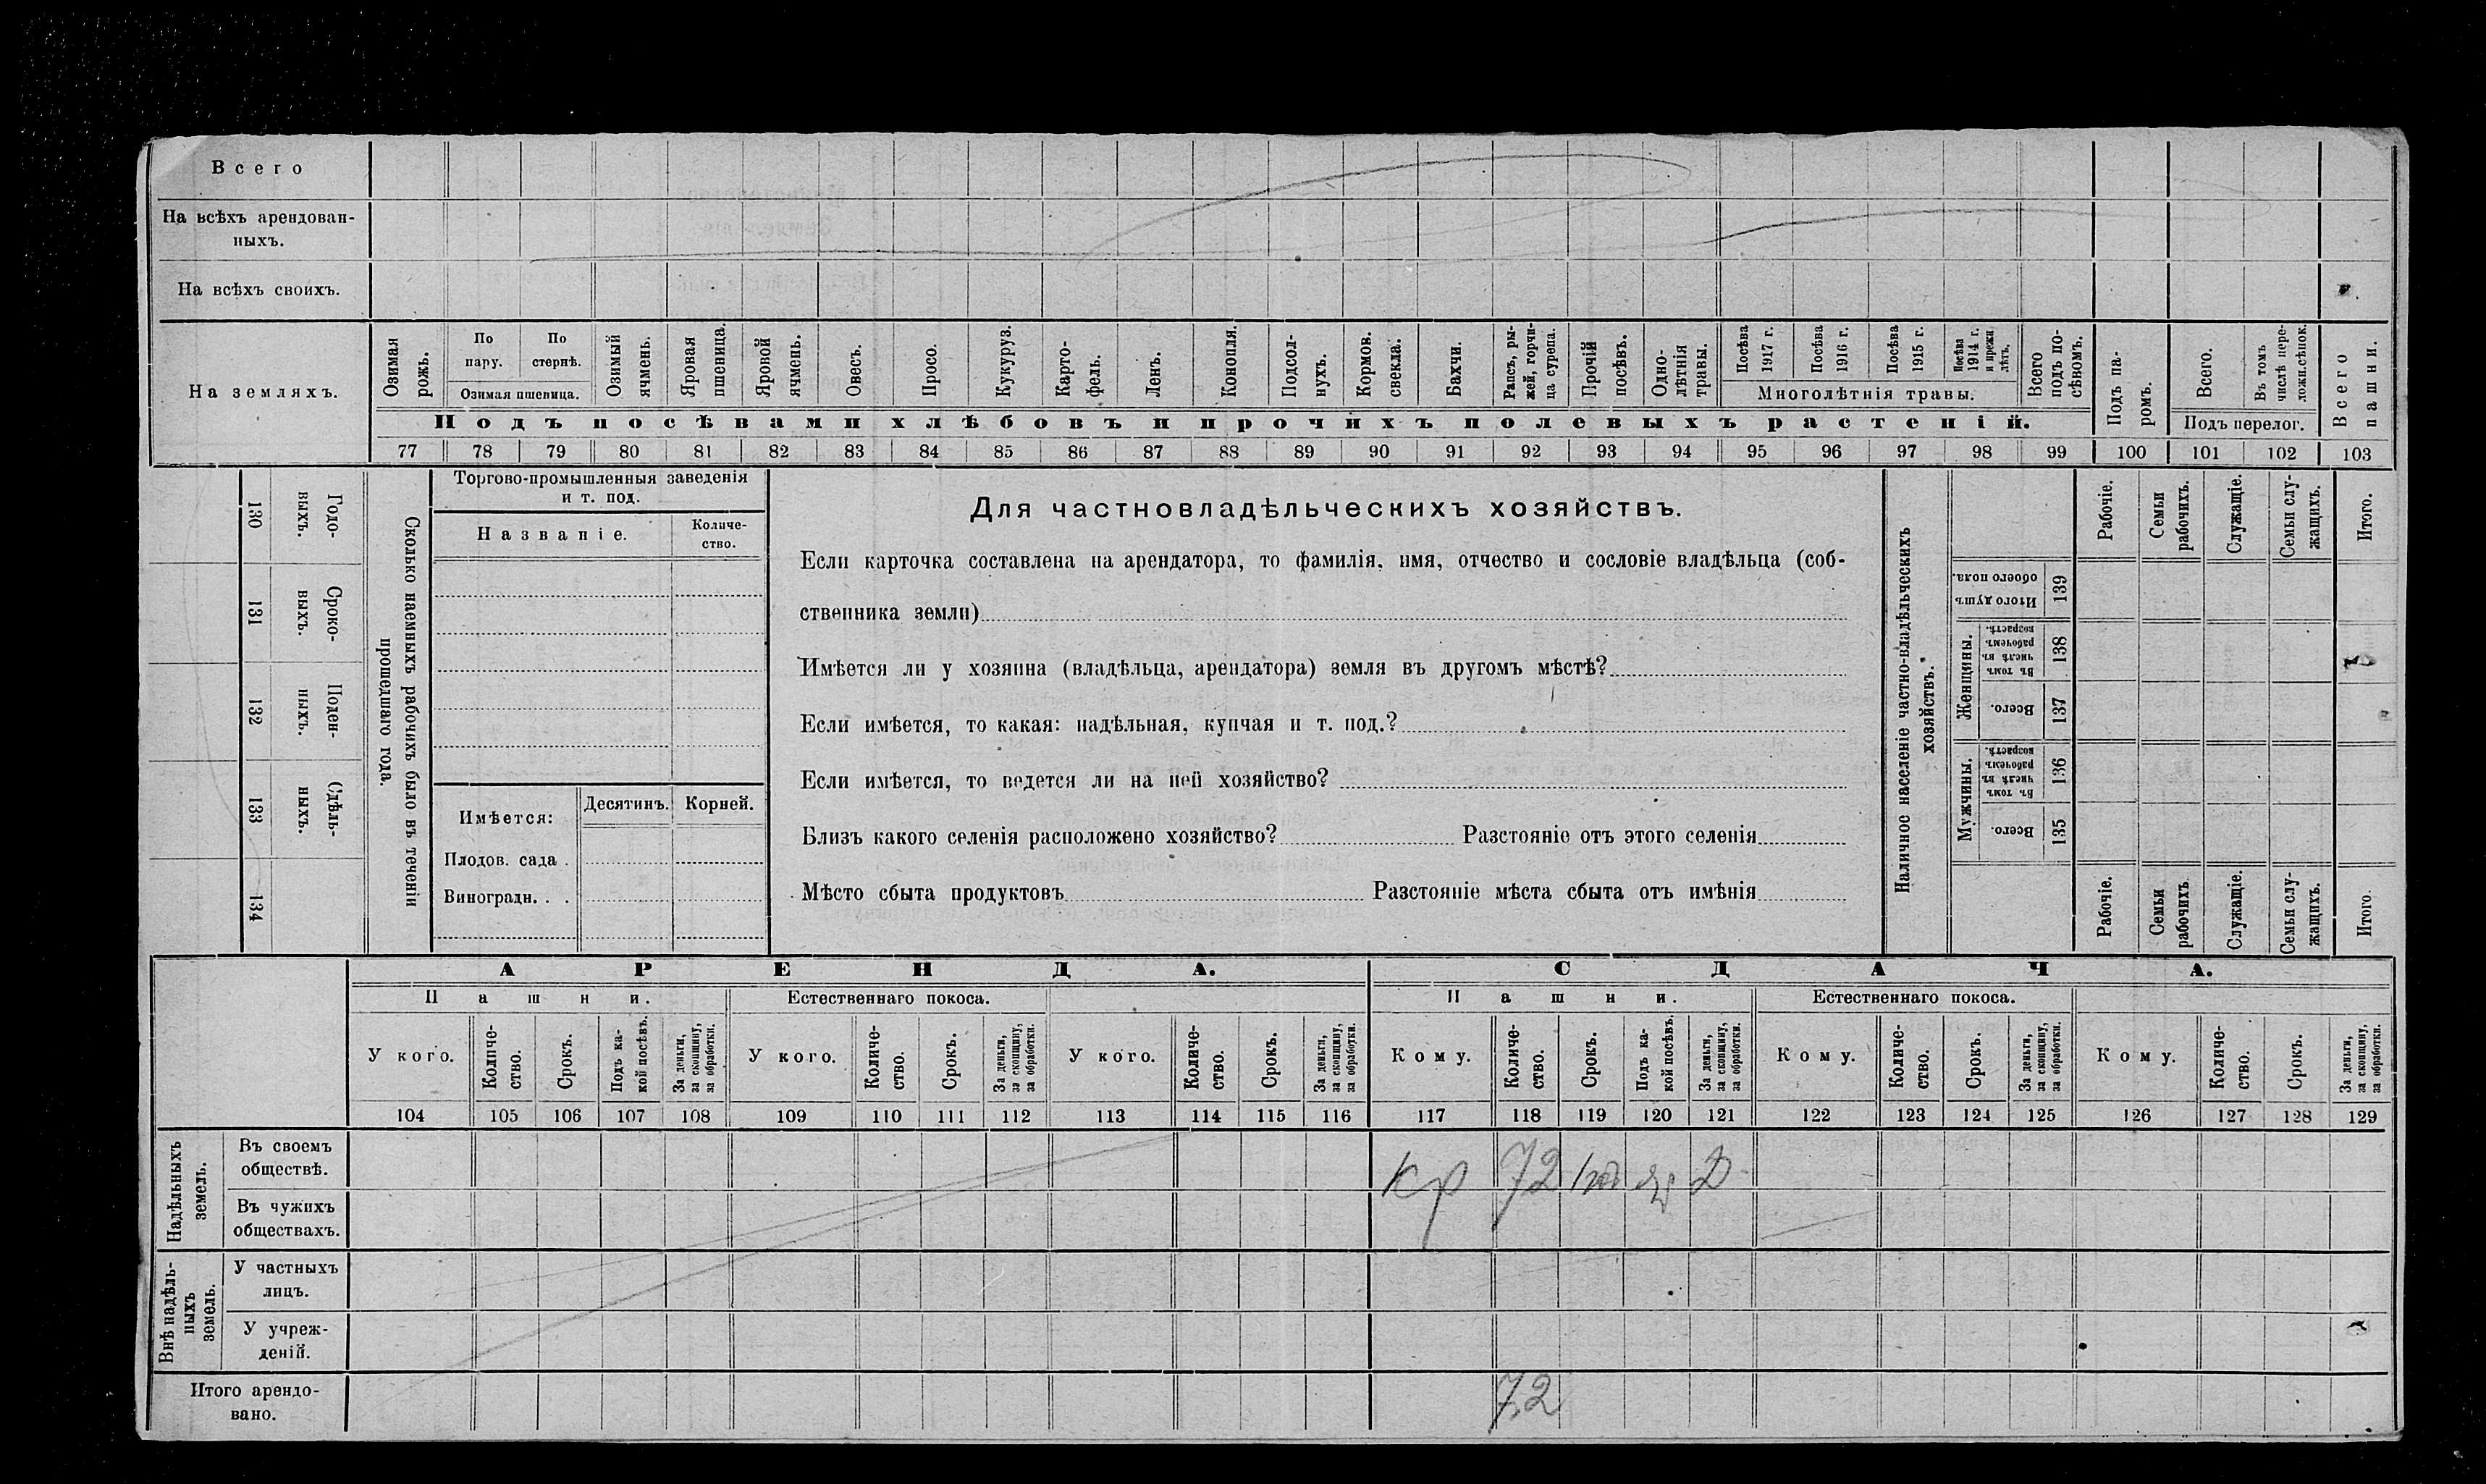 Всего
На всѣхъ арендован-
ныхъ.
На всѣхъ своихъ.
На земляхъ.
Озимая рожь.
По пару.
По стернѣ.
Озимая пшеница.
Озимый ячмень.
Яровая пшеница.
Яровой ячмень.
Овесъ.
Просо.
Кукуруз.
Карто-
фель.
Ленъ.
Конопля.
Подсол-
нухъ.
Кормов.
свекла.
Бахчи.
Рапсъ, ры-
жей, горчи-
ца сурепа.
Прочій
посѣвъ.
Одно-
лѣтнія
травы.
Посѣва
1917 г.
Посѣва
1916 г.
Посѣва
1915 г.
Посѣва
1914 г.
и прежн
лѣтъ.
Многолѣтнія травы.
Всего
подъ по-
сѣвомъ.
Подъ посѣвами хлѣбовъ и прочихъ полевыхъ растеній.
Подъ па-
ромъ.
Всего.
Въ томъ
числѣ пере-
ложн.сѣнок.
Подъ перелог.
Всего
пашни.
77 78 79 80 81 82 83 84 85 86 87 88 89 90 91 92 93 94 95 96 97 98 99 100 101 102 103
130
Годо-
выхъ.
131
Сроко-
выхъ.
132
Поден-
ныхъ.
133
Сдѣль-
ныхъ.
134
Сколько наемныхъ рабочихъ было въ теченіи
прошедшаго года.
Торгово-промышленныя заведенія
и т. под.
Названіе.
Количе-
ство.
Имѣется:
Десятинъ.
Корней.
Плодов. сада .
Виноградн. . .
Для частновладѣльческихъ хозяйствъ.
Если карточка составлена на арендатора, то фамилія, имя, отчество и сословіе владѣльца (соб-
ственника земли)
Имѣется ли у хозяина (владѣльца, арендатора) земля въ другомъ мѣстѣ?
Если имѣется, то какая: надѣльная, купчая и т. под.?
Если имѣется, то ведется ли на ней хозяйство?
Близъ какого селенія расположено хозяйство? Разстояніе отъ этого селенія
Мѣсто сбыта продуктовъ Разстояніе мѣста сбыта отъ имѣнія
Наличное населеніе частно-владѣльческихъ
хозяйствъ.
Рабочіе.
Семьи
рабочихъ.
Служащіе.
Семьи слу-
жащихъ.
Итого.
Итого душъ
обоего пола.
139
Женщины.
Въ томъ
числѣ въ
рабочемъ
возрастѣ.
138
Всего.
137
Мужчины.
Въ томъ
числѣ въ
рабочемъ
возрастѣ.
136
Всего.
135
Рабочіе.
Семьи
рабочихъ
Служащіе.
Семьи слу-
жащихъ.
Итого
АРЕНДА.
СДАЧА.
Пашни.
Естественнаго покоса.
Пашни.
Естественнаго покоса.
У кого.
Количе-
ство.
Срокъ.
Подъ ка-
кой посѣвъ.
За деньги,
за скопщину,
за обработки.
У кого.
Количе-
ство.
Срокъ.
За деньги,
за скопщину,
за обработки.
У кого.
Количе-
ство.
Срокъ.
За деньги,
за скопщину,
за обработки.
Кому.
Количе-
ство.
Срокъ.
Подъ ка-
кой посѣвъ.
За деньги,
за скопщину,
за обработки.
Кому.
Количе-
ство.
Срокъ.
За деньги,
за скопщину,
за обработки.
Кому.
Количе-
ство.
Срокъ.
За деньги,
за скопщину,
за обработки.
104 105 106 107 108 109 110 111 112 113 114 115 116 117 118 119 120 121 122 123 124 125 126 127 128 129
Надѣльныхъ
земель.
Въ своемъ
обществѣ.
кр 72 1 год Д
Въ чужихъ
обществахъ.
Внѣ надѣль-
ныхъ
земель.
У частныхъ
лицъ.
У учреж-
деній.
Итого арендо-
вано.
7,2